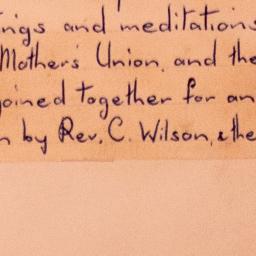 ings and meditations
Mothers' Union, and the
joined together for an
n by Rev. C. Wilson, & the